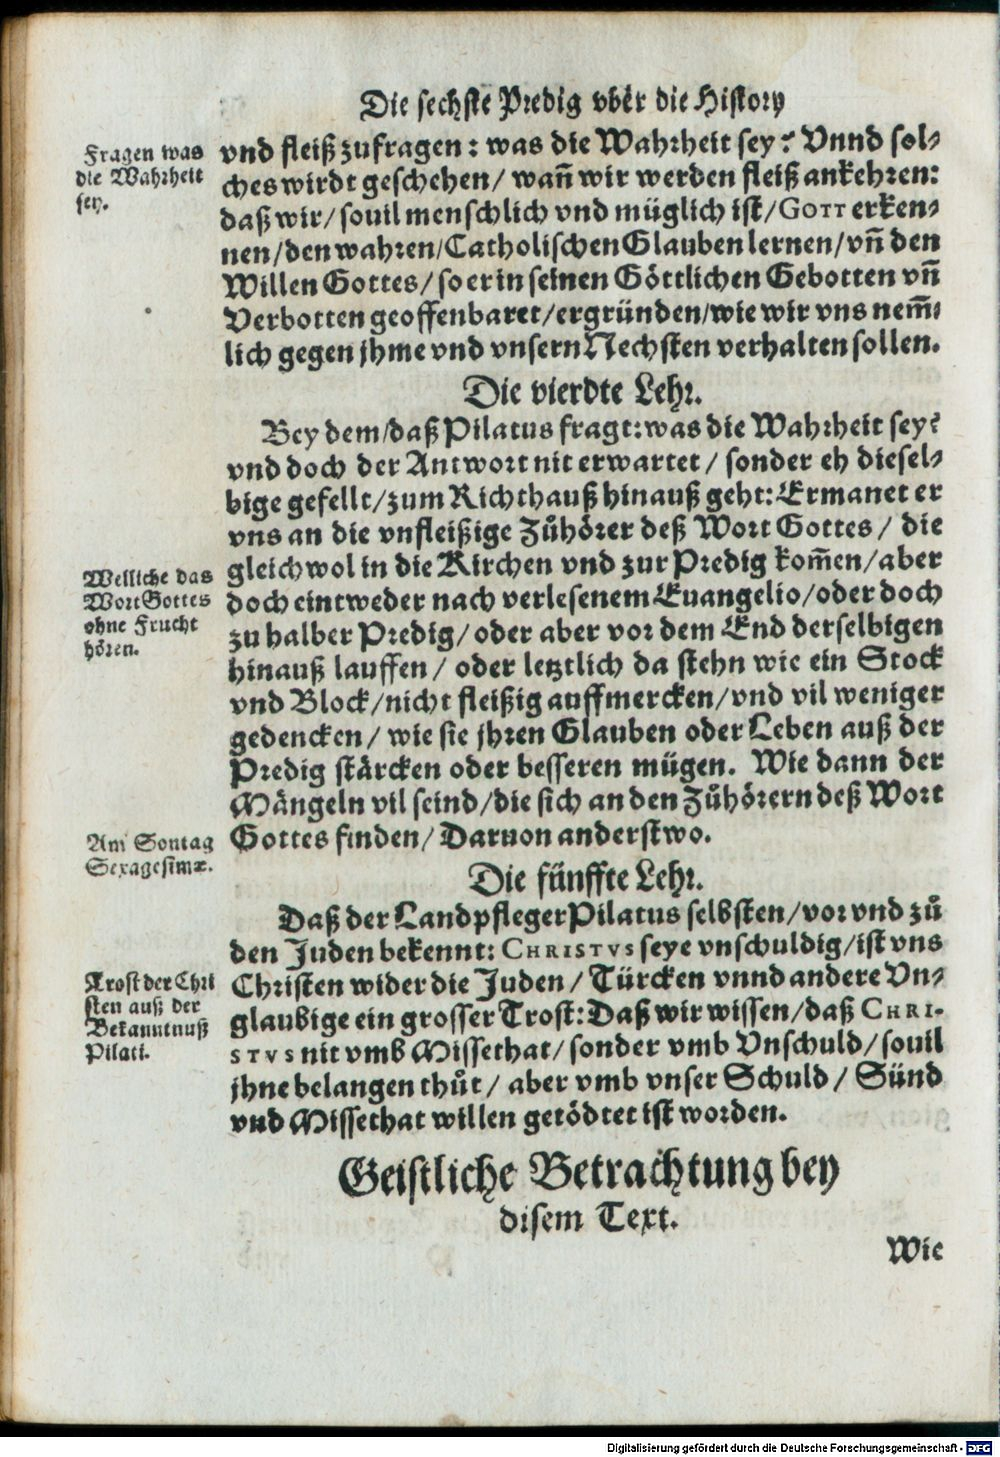 Die sechste Predig vber die History
Fragen was
die Wahrheit
sey.
vnd fleiß zufragen: was die Wahrheit sey? Vnnd sol-
ches wirdt geschehen/ wañ wir werden fleiß ankehren:
daß wir/ souil menschlich vnd müglich ist/ GOTT erken-
nen/ den wahren/ Catholischen Glauben lernen/ vñ den
Willen Gottes/ so er in seinen Göttlichen Gebotten vñ
Verbotten geoffenbaret/ ergründen/ wie wir vns nem̄-
lich gegen jhme vnd vnsern Nechsten verhalten sollen.
Die vierdte Lehr.
Bey dem/ daß Pilatus fragt: was die Wahrheit sey?
vnd doch der Antwort nit erwartet/ sonder eh diesel-
bige gefellt/ zum Richthauß hinauß geht: Ermanet er
vns an die vnfleißige Zůhörer deß Wort Gottes/ die
Welliche das
Wort Gottes
ohne Frucht
hören.
gleichwol in die Kirchen vnd zur Predig kom̄en/ aber
doch eintweder nach verlesenem Euangelio/ oder doch
zu halber Predig/ oder aber vor dem End derselbigen
hinauß lauffen/ oder letztlich da stehn wie ein Stock
vnd Block/ nicht fleißig auffmercken/ vnd vil weniger
gedencken/ wie sie jhren Glauben oder Leben auß der
Predig stärcken oder besseren mügen. Wie dann der
Mängeln vil seind/ die sich an den Zůhörern deß Wort
Gottes finden/ Daruon anderstwo.
Am Sontag
Sexagesimæ.
Die fünffte Lehr.
Daß der Landpfleger Pilatus selbsten/ vor vnd zů
den Juden bekennt: CHRISTVS seye vnschuldig/ ist vns
Trost der Chri
sten auß der
Bekanntnuß
Pilati.
Christen wider die Juden/ Türcken vnnd andere Vn-
glaubige ein grosser Trost: Daß wir wissen/ daß CHRI-
STVS nit vmb Missethat/ sonder vmb Vnschuld/ souil
jhne belangen thůt/ aber vmb vnser Schuld/ Sünd
vnd Missethat willen getödtet ist worden.
Geistliche Betrachtung bey
disem Text.
Wie
Digitalisierung gefördert durch die Deutsche Forschungsgemeinschaft - DFG